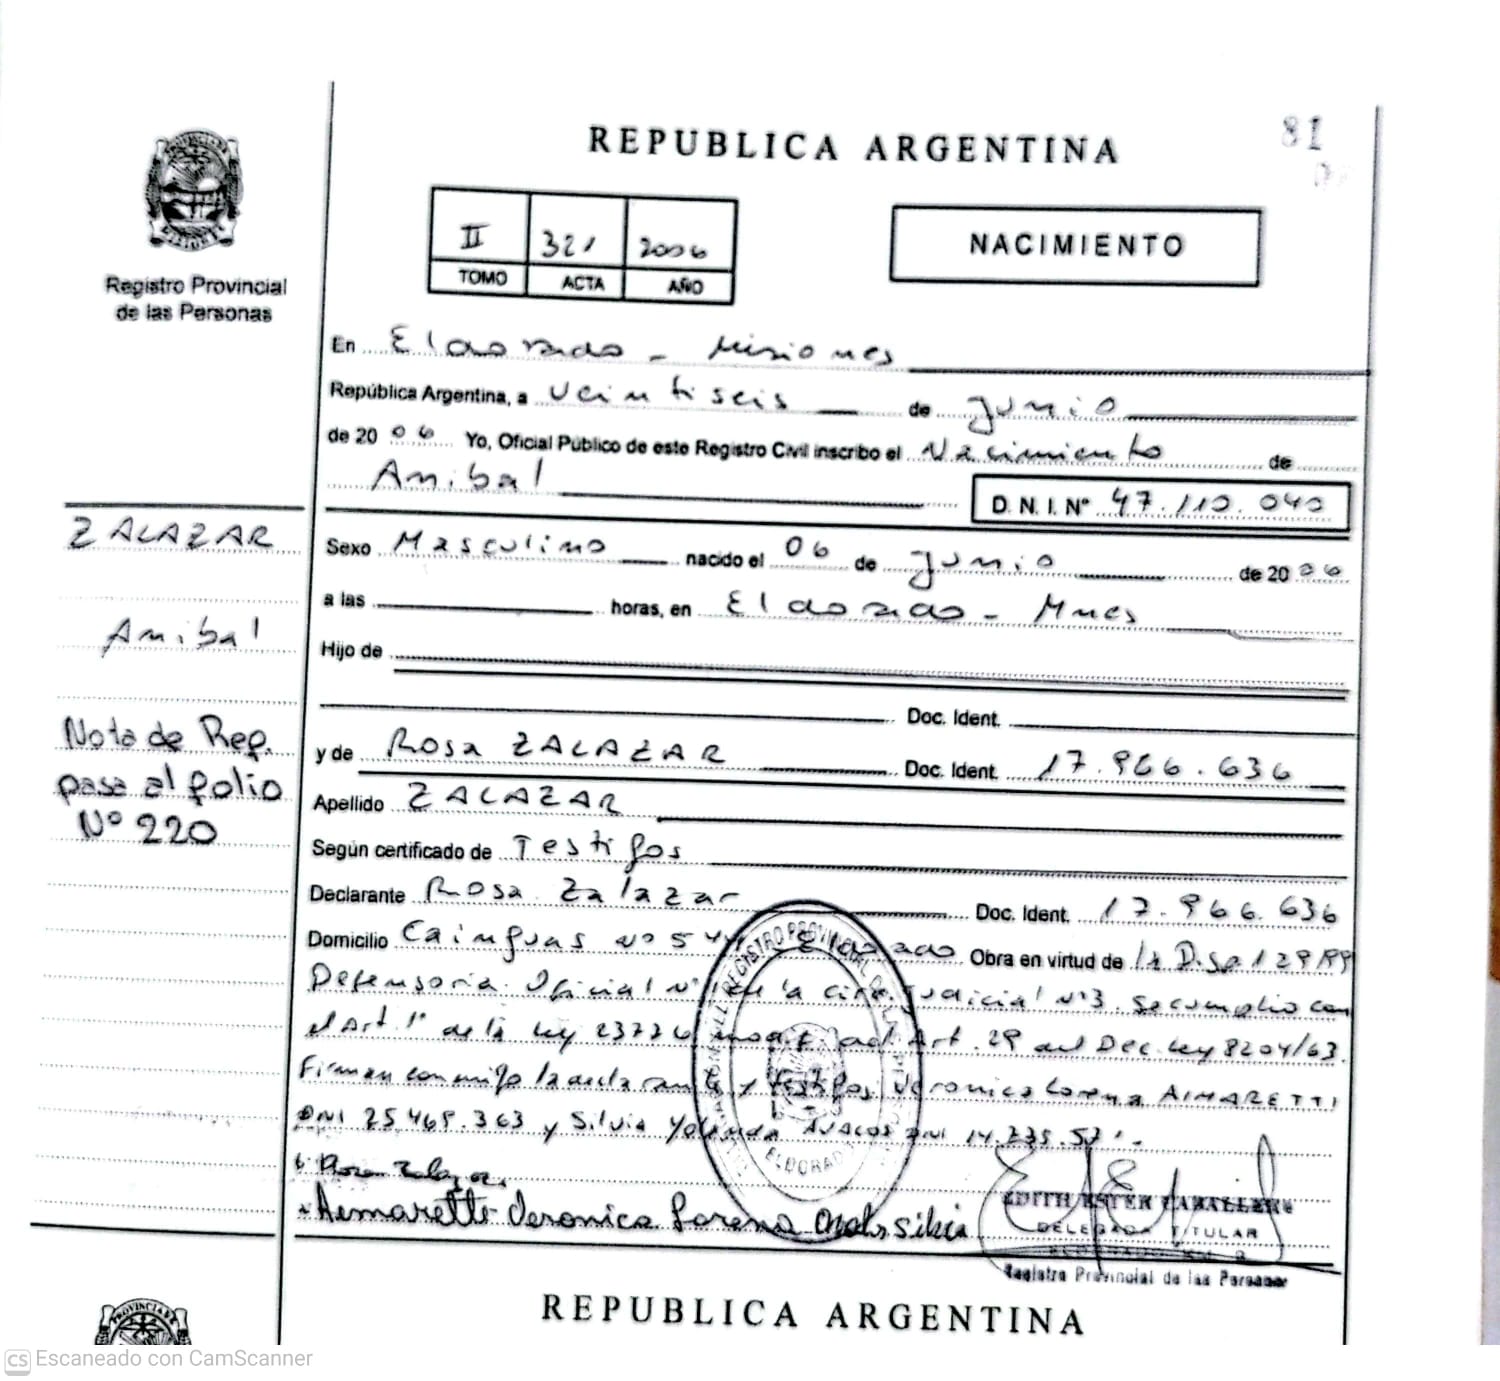 REPUBLICA ARGENTINA
81
II 321 2006
TOMO ACTA AÑO
NACIMIENTO
Registro Provincial
de las Personas
En Eldorado - Misiones
República Argentina, a Veintiseis de Junio
de 2006 Yo, Oficial Público de este Registro Civil inscribo el Nacimiento de
Anibal
D. N. I. Nº 47.110.040
ZALAZAR
Anibal
Nota de Rep.
pasa al folio
Nº 220
Sexo Masculino nacido el 06 de Junio de 2006
a las horas, en Eldorado - Mnes
Hijo de
Doc. Ident.
y de Rosa ZALAZAR Doc. Ident. 17.966.636
Apellido ZALAZAR
Según certificado de Testigos
Declarante Rosa Zalazar Doc. Ident. 17.966.636
Domicilio Cainguas Nº Eldorado Obra en virtud de la
Defensoria Oficial la circ. Judicial Nº3. Se cumplio con
el Art. 1º de la ley 23776 modif. del Art. 29 del Dec. Ley 8204/63.
Firman conmigo la declarante y testigos Veronica Lorena AIMARETTI
DNI 25.465.363 y Silvia Yolanda AVALOS DNI
Rosa Zalazar
Aimaretti Veronica Lorena
REGISTRO PROVINCIAL DE LAS
ELDORADO
EDITH ESTER CABALLERO
DELEGADA TITULAR
Registro Provincial de las Personas
REPUBLICA ARGENTINA
CS Escaneado con CamScanner